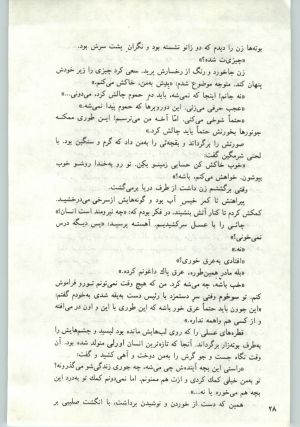 بوته‌ها زن را دیدم که دو زانو نشسته بود و نگران پشت سرش بود.
«چیزی‌ت شده؟!»
زن جاخورد و رنگ از رخسارش پرید. سعی کرد چیزی را زیر خودش
پنهان کند. متوجه موضوع شدم، «پدش بمن. خاکش می‌کنم.»
«نه جانم! اینجا که نمی‌شه. باید دم حموم چالش کرد. می‌دونی...»
«عجب حرفی می‌زنی. این دوروبرها که حموم پیدا نمی‌شه.»
«حتماً شوخی می‌کنی. امّا آخه من می‌ترسیم! این طوری ممکنه
جونورها بخورنش حتماً باید چالش کرد.»
صورتش را برگرداند و بقچه‌ئی را بمن داد که گرم و سنگین بود. با
لحنی شرمگین گفت:
«خوب خاکش کن حسابی زمینو بکن. تو رو به‌خدا روشو خوب
بپوشون. خواهش می‌کنم، باشه!»
وقتی برگشتم زن داشت از طرف دریا برمی‌گشت.
پیراهنش تا کمر خیس آب بود و گونه‌هایش از سرخی می‌درخشید.
کمکش کردم تا کنار آتش بنشیند. در فکر بودم که: «چه نیرومند است انسان!»
چائی را با عسل سرکشیدیم. آهسته پرسید: «پس دیگه درس
نمی‌خونی؟»
«نه.»
«افتادی به‌عرق خوری؟!»
«بله مادر همین‌طوره. عرق پاک داغونم کرده.»
«طب باشه. چه می‌شه کرد. من که هیچ وقت نمی‌تونم تورو فراموش
کنم. تو سوخوم وقتی سر دستمزد با رئیس دست به‌یقه شدی به‌خودم گفتم:
«این جوون باید حتماً عرق خور باشه که این طوری با این و اون در می‌افته
و از کسی هم واهمه نداره.»
قطره‌های عسلی را که روی لب‌هایش مانده بود لیسید و چشم‌هایش را
به‌طرف بوته‌زار برگرداند. آنجا که تازه‌ترین انسان اورلی متولد شده بود. آن
وقت نگاه جست و جو گرش را بمن دوخت و آهی کشید و گفت:
«راستی این بچه آینده‌ش چی می‌شه. چه جوری زندگی‌شو می‌گذرونه؟
تو بمن خیلی کمک کردی و ازت هم ممنونم. اما نمی‌دونم کمک تو به‌درد این
بچه هم می‌خوره یا نه...»
همین که دست از خوردن و نوشیدن برداشت، با انگشت صلیبی بر
۲۸